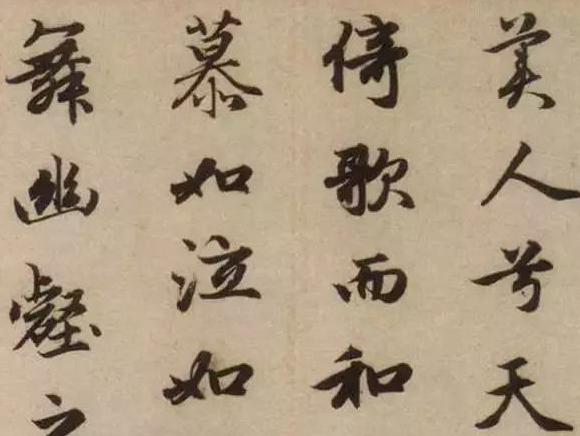 美人兮天
倚歌而和
慕如泣如
舞幽壑之